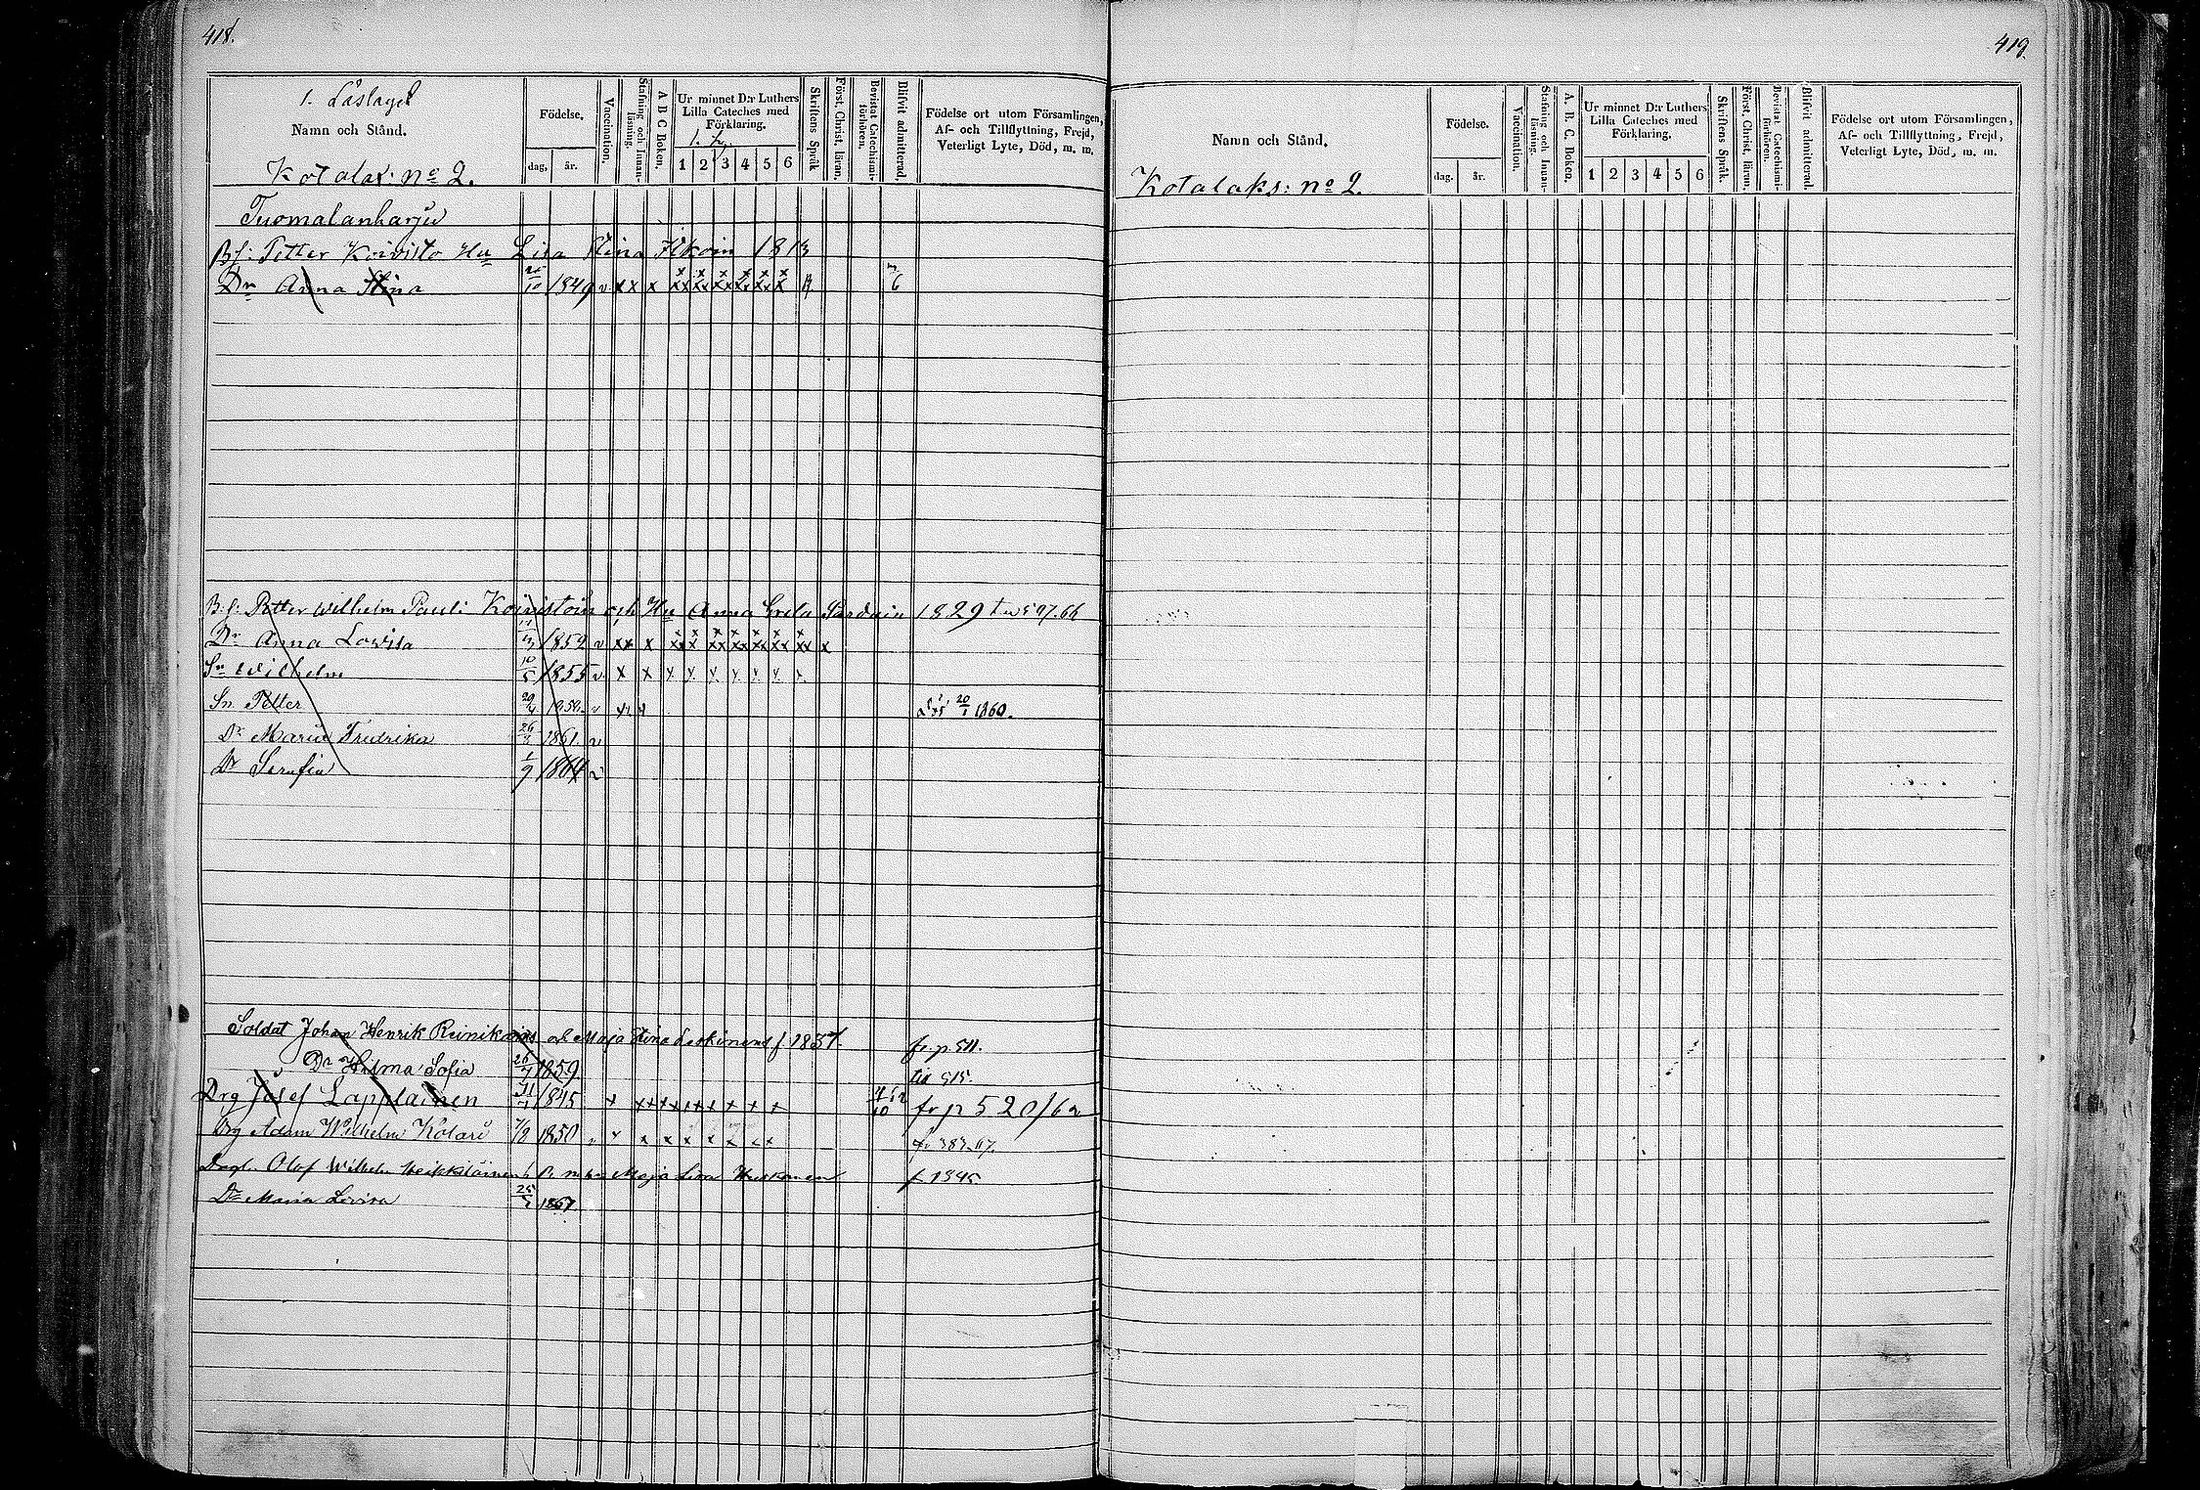 418.
1. Läslaget
Namn och Stånd.
Kotalax: no 2.
Födelse.
dag, år.
Vaccination.
Stafning och Innanläsning.
A B C Boken.
Ur minnet D:r Luthers Lilla Cateches med Förklaring.
1 2 3 4 5 6
Skriftens Språk
Först. Christ. läran.
Bevistat Catechismi-förhören.
Blifvit admitterad.
Födelse ort utom Församlingen,
Af- och Tillflyttning, Frejd,
Veterligt Lyte, Död, m. m.
Tuomalanharju
Bf: Petter Koivisto Hu Lisa Stina 1813
Dr Anna Stina 1849 v x x x
Bf: Petter Wilhelm Pauli Koivistoin och Hu Anna Greta 1829
Dr Anna Lovisa 1852 v xx x
Sn Wilhelm 10/5 1855 v x x x x x x x x
Sn Petter 1858 20/1 1860.
Dr Maria Fredrika 26/3 1861. v
Dr Serafia 1/9 1864 v
Soldat Johan Henrik Reinikain och Maja Stina f 1837. fr. p. 511.
Dr Hilma Sofia 26/7 1859. till 515.
Drg Josef Lapplainen 1845 fr p 520/62
Drg Adam Wilhelm Kotari 7/9 1850 fr 383.67.
Dagl. Olof Wilhelm Heikkiläinen Maja Lisa f. 1845
Dr Maria Lovisa 1867.
419.
Namn och Stånd.
Kotalaks: no 2.
Födelse.
dag. år.
Vaccination.
Stafning och Innanläsning.
A. B. C. Boken.
Ur minnet D:r Luthers Lilla Cateches med Förklaring.
1 2 3 4 5 6
Skriftens Språk.
Först. Christ. läran.
Bevistat Catechismi-förhören.
Blifvit admitterad.
Födelse ort utom Församlingen,
Af- och Tillflyttning, Frejd,
Veterligt Lyte, Död, m. m.